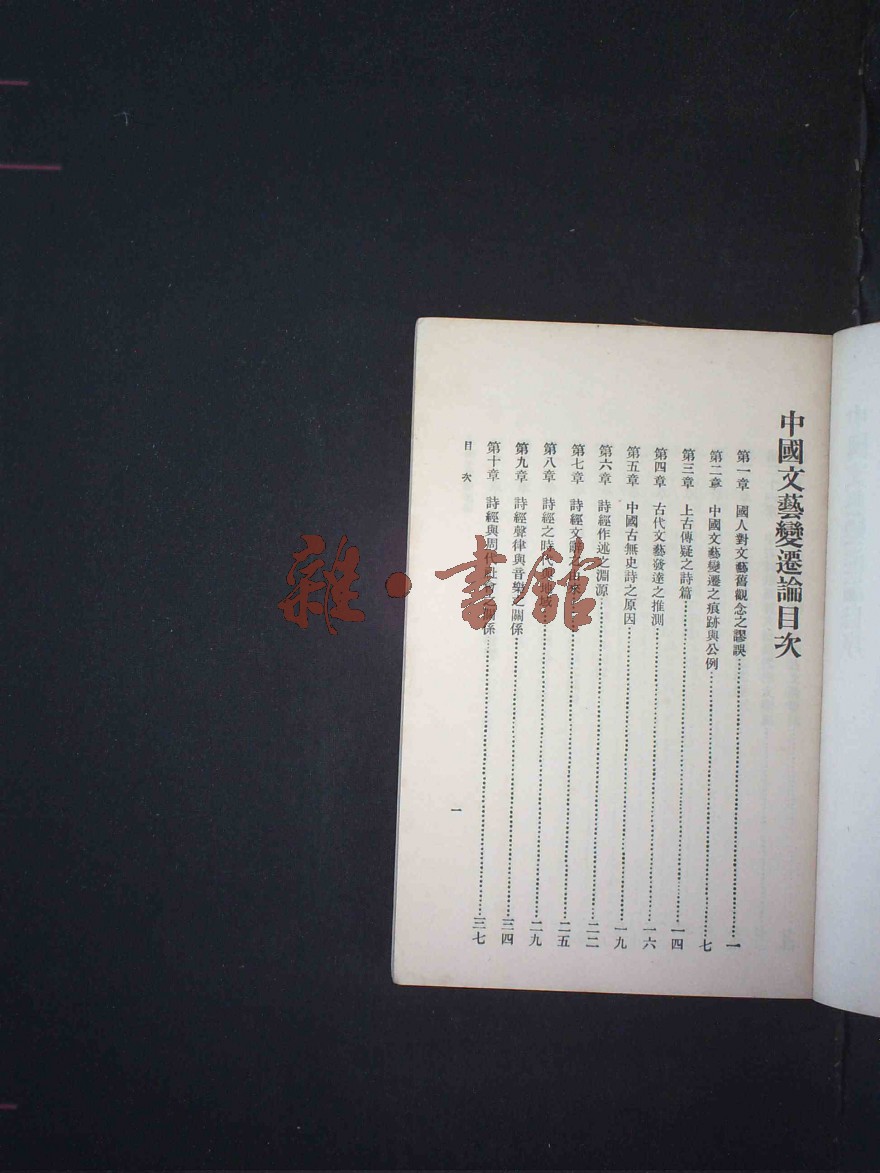 中國文藝變遷論目次
第一章 國人對文藝舊觀念之謬誤……一
第二章 中國文藝變遷之痕跡與公例……七
第三章 上古傳疑之詩篇……一四
第四章 古代文藝發達之推測……一六
第五章 中國古無史詩之原因……一九
第六章 詩經作述之淵源……二二
第七章 詩經文……二五
第八章 詩經之時代……二九
第九章 詩經聲律與音樂之關係……三四
第十章 詩經與周代社會之關係……三七
目次
一
雜·書館